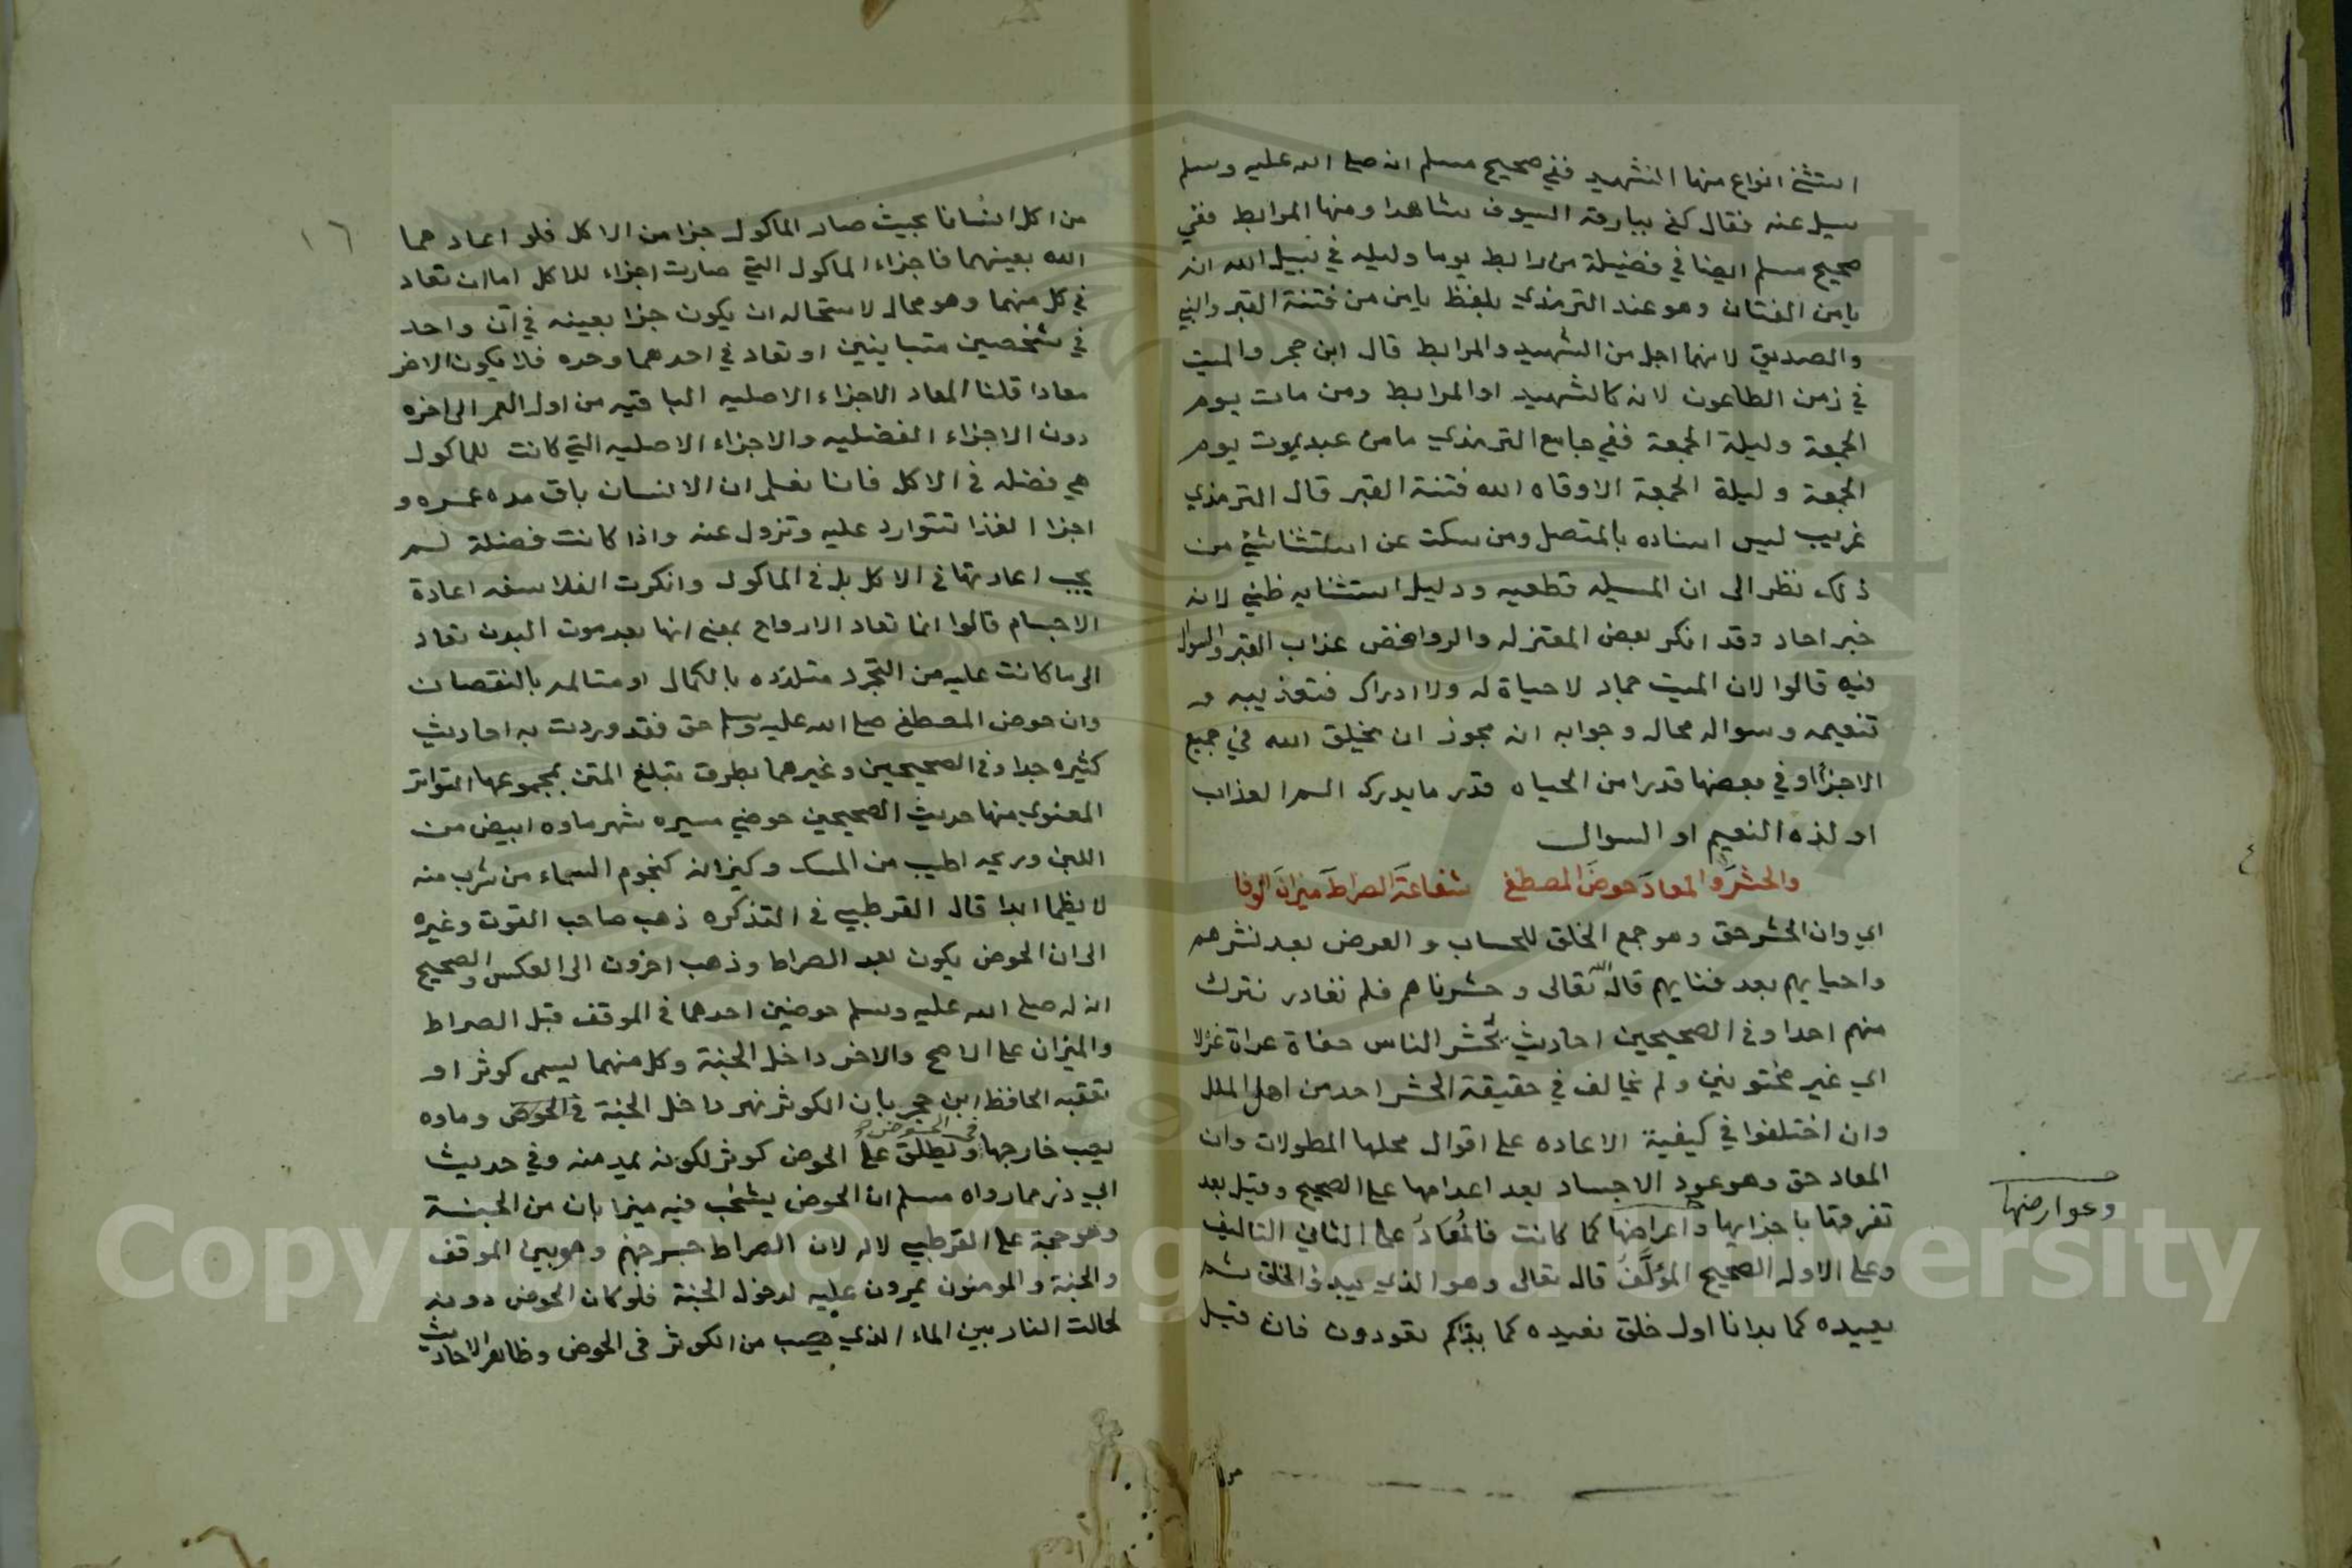 استثني انواع منها الشهيد ففي صحيح مسلم انه صلى الله عليه وسلم
سيل عنه فقال كفى ببارقة السيوف شاهدا ومنها المرابط ففي
صحيح مسلم ايضا في فضيلة من رابط يوما وليله في سبيل الله انه
يامن الفتان وهو عند الترمذي بلفظ يامن من فتنة القبر والنبي
والصديق لانهما اجل من الشهيد والمرابط قال ابن حجر والميت
في زمن الطاعون لانه كالشهيد او المرابط ومن مات يوم
الجمعة وليلة الجمعة ففي جامع الترمذي ما من عبد يموت يوم
الجمعة وليلة الجمعة الا وقاه الله فتنة القبر قال الترمذي
غريب ليس اسناده بالمتصل ومن سكت عن استثنا شيء من
ذلك نظر الى ان المسيله قطعيه ودليل استثنايه ظني لانه
خبر احاد وقد انكر بعض المعتزله والروافض عذاب القبر والسوال
فيه قالوا لان الميت جماد لا حياة له ولا ادراك فتعذيبه و
تنعيمه وسواله محال وجوابه انه يجوز ان يخلق الله في جميع
الاجزا او في بعضها قدرا من الحياه قدر ما يدرك الم العذاب
او لذه النعيم او السوال
والحشر والمعاد حوض المصطفى شفاعة الصراط ميزان الوفا
اي وان الحشر حق وهو جمع الخلق للحساب والعرض بعد نشرهم
واحيايهم بعد فنايهم قال الله تعالى وحشرناهم فلم نغادر نترك
منهم احدا وفي الصحيحين احاديث يحشر الناس حفاة عراة غرلا
اي غير مختونين ولم يخالف في حقيقة الحشر احد من اهل الملل
وان اختلفوا في كيفية الاعاده على اقوال محلها المطولات وان
المعاد حق وهو عود الاجساد بعد اعدامها على الصحيح وقيل بعد
تفرقها باجزايها واعراضها كما كانت فالمعاد على الثاني التاليف
وعوارضها
وعلى الاول الصحيح المؤلف قال تعالى وهو الذي يبدؤ الخلق ثم
يعيده كما بدانا اول خلق نعيده كما بداكم تعودون فان قيل
١٦
من اكل انسانا بحيث صار الماكول جزا من الاكل فلو اعادهما
الله بعينهما فاجزاء الماكول التي صارت اجزاء للاكل اما ان تعاد
في كل منهما وهو محال لاستحاله ان يكون جزا بعينه في آن واحد
في شخصين متباينين او تعاد في احدهما وحده فلا يكون الاخر
معادا قلنا المعاد الاجزاء الاصليه الباقيه من اول العمر الى اخره
دون الاجزاء الفضليه والاجزاء الاصليه التي كانت للماكول
هي فضله في الاكل فانا نعلم ان الانسان باق مده عمره و
اجزا الغذا تتوارد عليه وتزول عنه واذا كانت فضلة لم
يجب اعادتها في الاكل بل في الماكول وانكرت الفلاسفه اعادة
الاجسام قالوا انما تعاد الارواح بمعنى انها بعد موت البدن تعاد
الى ما كانت عليه من التجرد متلذذه بالكمال او متالمه بالنقصان
وان حوض المصطفى صلى الله عليه وسلم حق فقد وردت به احاديث
كثيره جدا وفي الصحيحين وغيرهما بطرق تبلغ المتن بمجموعها التواتر
المعنوي منها حديث الصحيحين حوضي مسيره شهر ماوه ابيض من
اللبن وريحه اطيب من المسك وكيزانه كنجوم السماء من شرب منه
لا يظما ابدا قال القرطبي في التذكره ذهب صاحب القوت وغيره
الى ان الحوض يكون بعد الصراط وذهب اخرون الى العكس والصحيح
ان له صلى الله عليه وسلم حوضين احدهما في الموقف قبل الصراط
والميزان على الاصح والاخر داخل الجنة وكل منهما يسمى كوثر او
تعقبه الحافظ ابن حجر بان الكوثر نهر داخل الجنة في الحوض وماوه
يصب خارجها في الحوض ويطلق على الحوض كوثر لكونه يمد منه وفي حديث
ابي ذر مما رواه مسلم ان الحوض يشخب فيه ميزابان من الجنة
وهو حجة على القرطبي لا له لان الصراط جسر جهنم وهو بين الموقف
والجنة والمومنون يمرون عليه لدخول الجنة فلو كان الحوض دونه
لحالت النار بين الماء الذي يصب من الكوثر في الحوض وظاهر الاحاديث